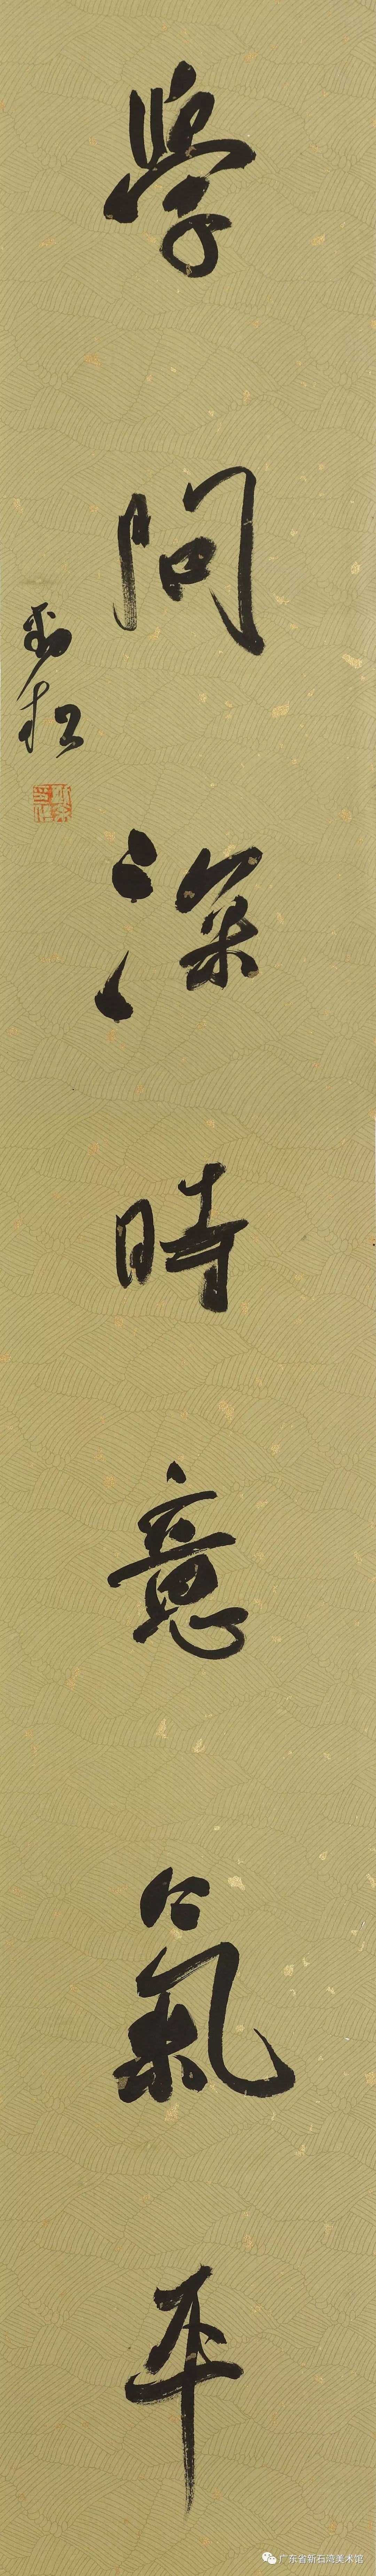 學問深時意氣平
广东省新石湾美术馆